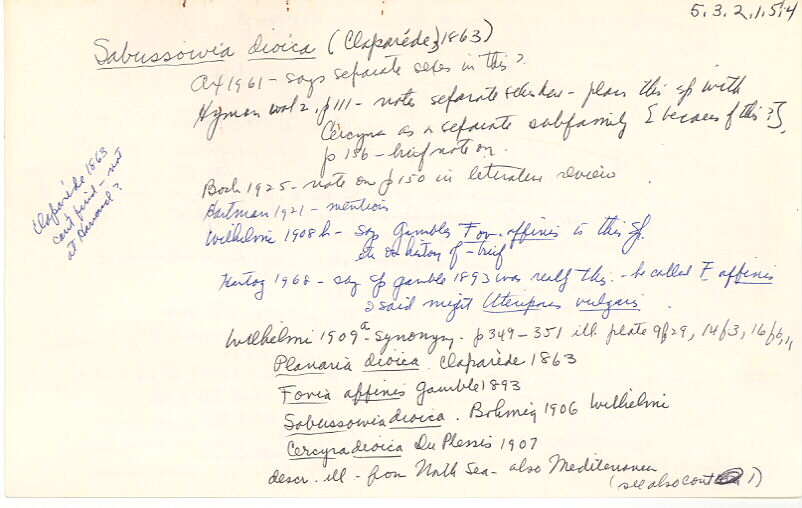 5.3.2.1.5.4
Sabussowia dioica (Claparéde, 1863)
Ax 1961 - says separate sexes in this?
Hyman vol 2, p 111 - notes separate - places this sp with
Cercyra as a separate subfamily [because of this?],
p 156 - brief note on.
Bock 1925 - note on p 150 in literature review.
Hartman 1921 - mentions
Wilhelmi 1908h - says Gambles Fov. affinis is this sp.
history of - brief
Hartog 1968 - say sp gamble 1893 was really this. - he called F affinis
& said might Uteriporus vulgaris.
Claparéde 1863
can't find - not
at Harvard?
Wilhelmi 1909a - synonymy - p 349-351 ill. plate 9f29, 14f3, 16f6,
Planaria dioica. Claparède 1863
Fovia affinis gamble 1893
Sabussowia dioica. Bohmig 1906 Wilhelmi
Cercyra dioica Du Plessis 1907
descr. ill - from North Sea - also Mediterranean
(see also cont 1)